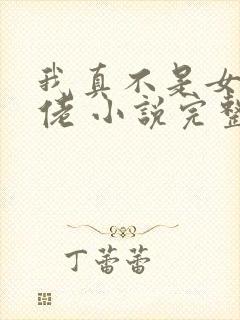 我真不是女
佬 小說完整
丁蕾蕾